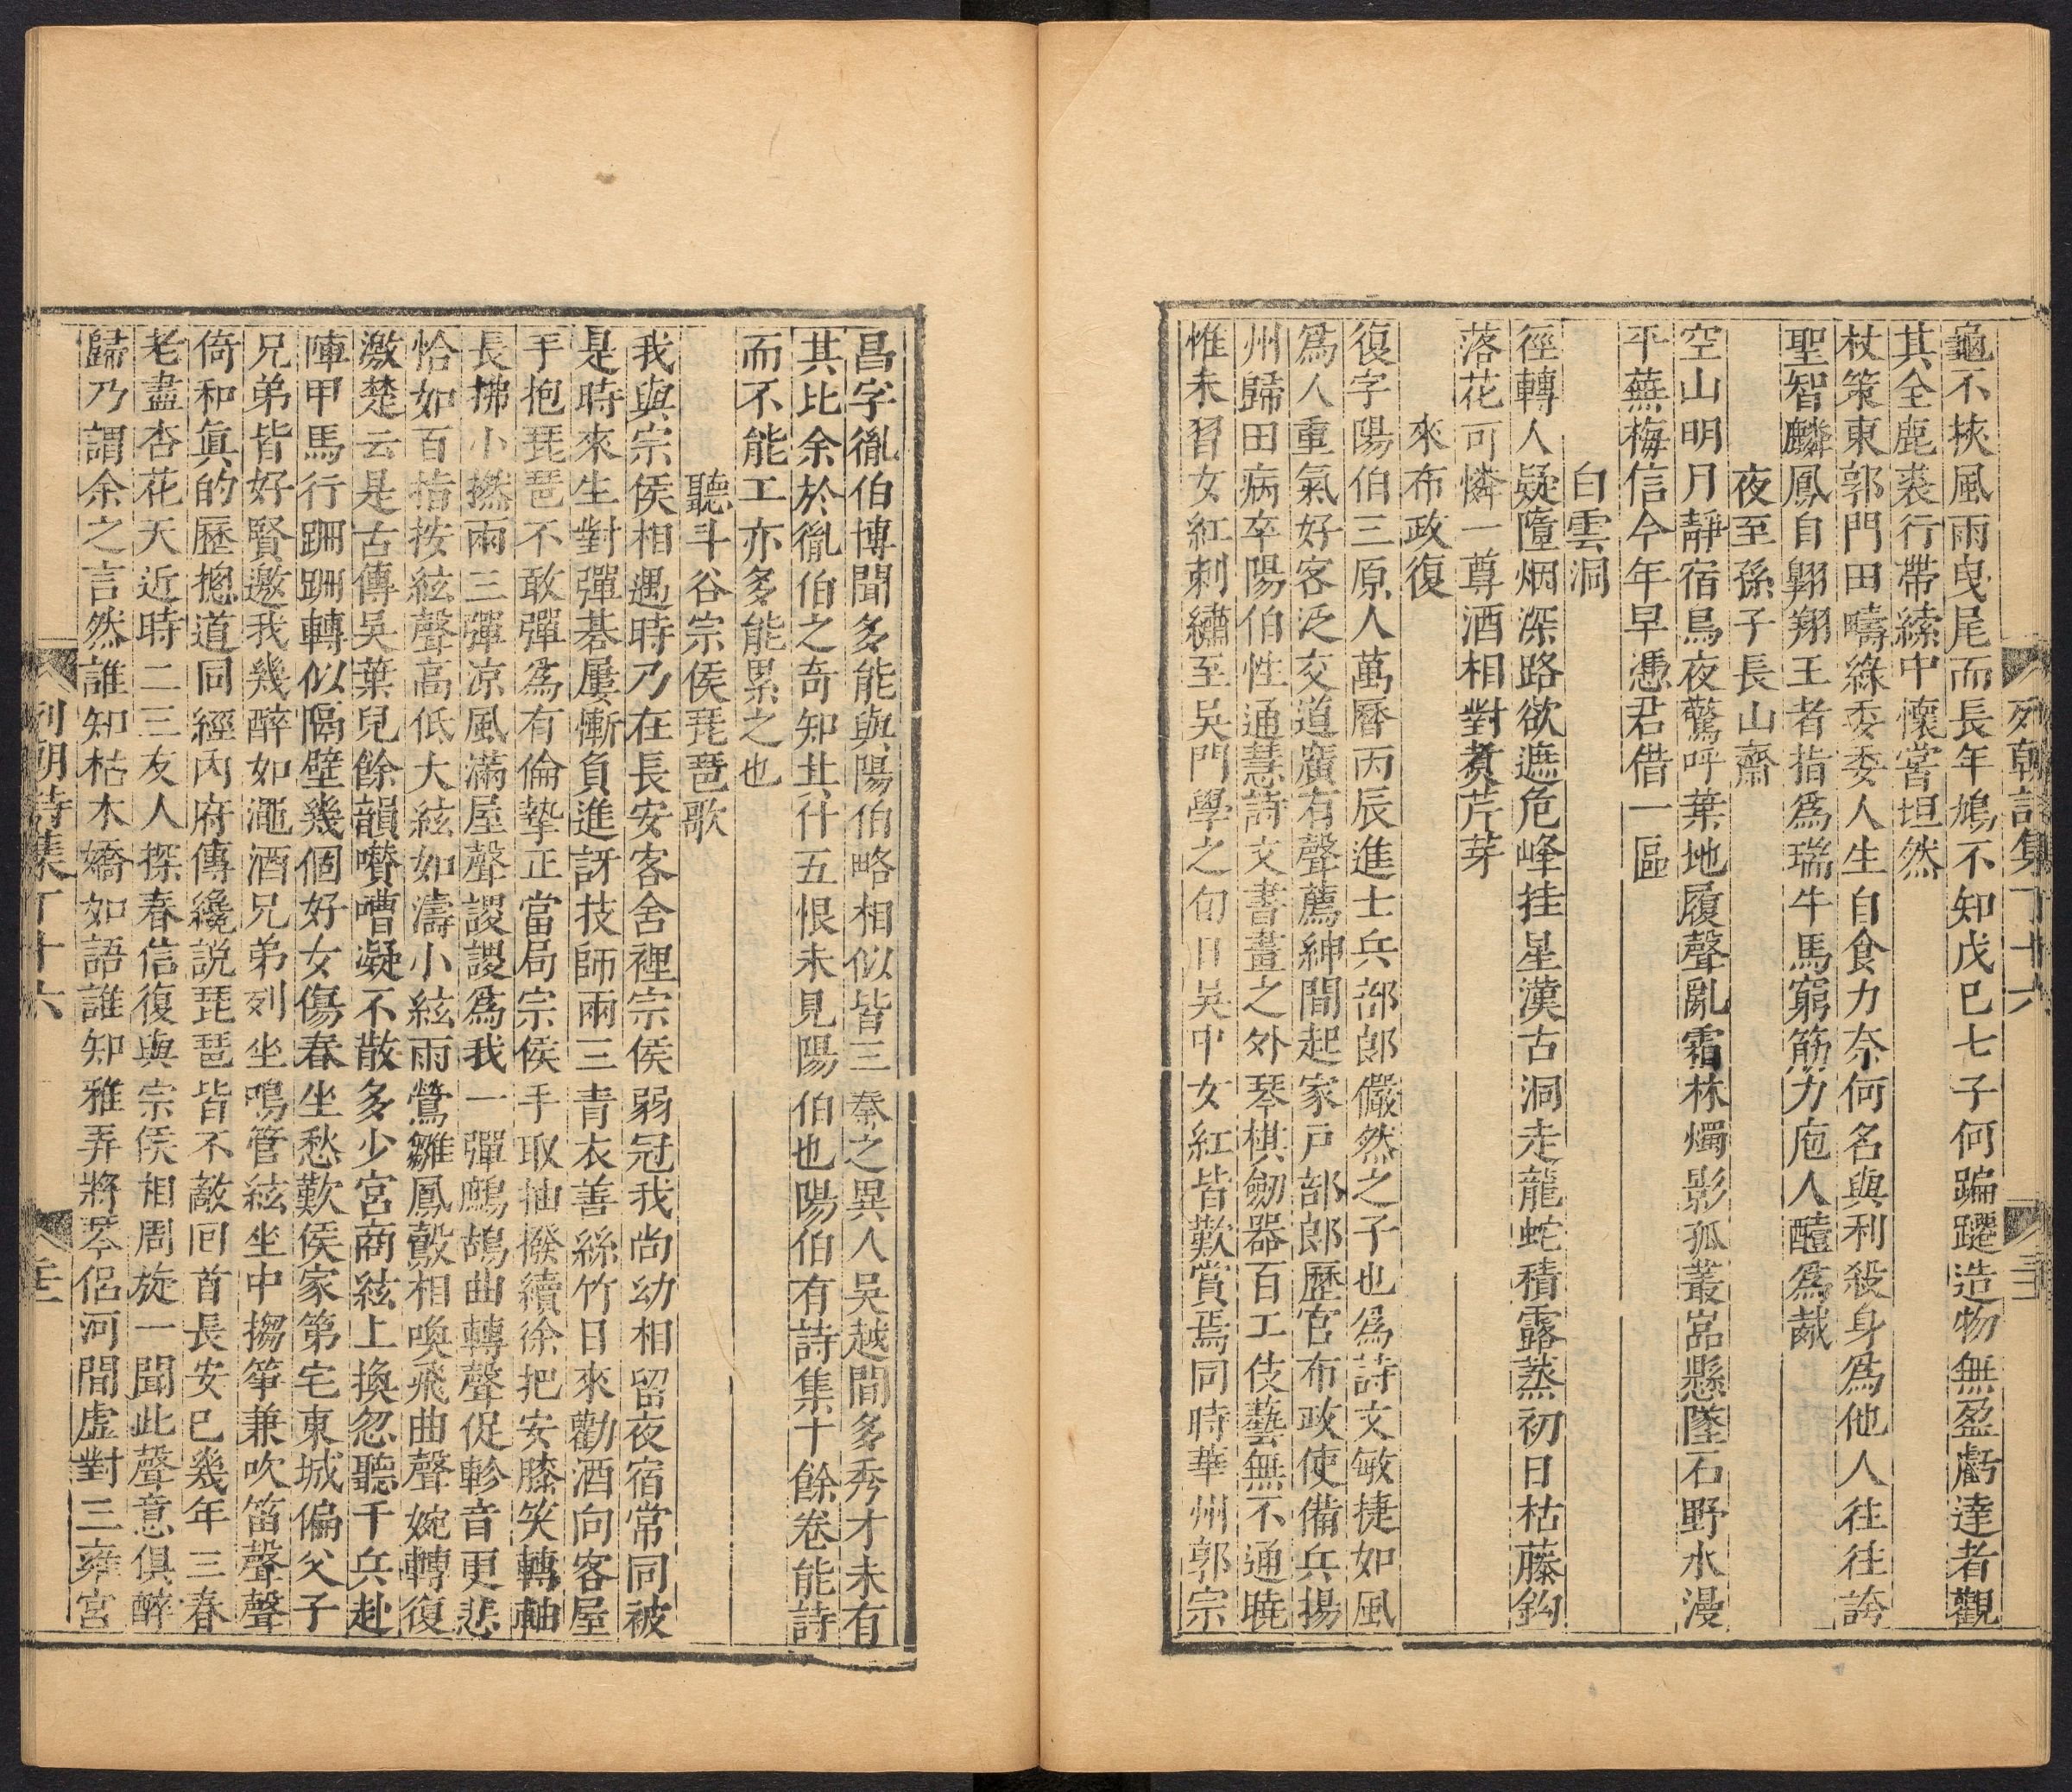 列朝詩集丁十六
龜不挾風雨曳尾而長年鳩不知戊巳七子何蹁躚造物無盈虧達者觀
其全鹿裘行帶縤中懷嘗坦然
杖策東郭門田疇綠委委人生自食力奈何名與利殺身爲他人往往誇
聖智麟鳳自翺翔王者指爲瑞牛馬窮筋力庖人醢爲胾
夜至孫子長山齋
空山明月靜宿鳥夜驚呼葉地履聲亂霜林燭影孤叢嵓懸墜石野水漫
平蕪梅信今年早憑君借一區
白雲洞
徑轉人疑墮烟深路欲遮危峰挂星漢古洞走龍蛇積露蒸初日枯藤鈎
落花可憐一尊酒相對煑芹芽
來布政復
復字陽伯三原人萬曆丙辰進士兵部郎儼然之子也爲詩文敏捷如風
爲人重氣好客泛交道廣有聲薦紳間起家戸部郎歷官布政使備兵揚
州歸田病卒陽伯性通慧詩文書畫之外琴棋劒器百工伎藝無不通曉
惟未習女紅刺繡至吳門學之旬日吳中女紅皆歎賞焉同時華州郭宗
昌字胤伯博聞多能與陽伯略相似皆三秦之異人吳越間多秀才未有
其比余於胤伯之奇知其什五恨未見陽伯也陽伯有詩集十餘卷能詩
而不能工亦多能累之也
聽斗谷宗侯琵琶歌
我與宗侯相遇時乃在長安客舍裡宗侯弱冠我尚幼相留夜宿常同被
是時來生對彈碁屢慚負進訝技師兩三青衣善絲竹日來勸酒向客屋
手抱琵琶不敢彈爲有倫摯正當局宗侯手取抽撥續徐把安膝笑轉軸
長拂小撚兩三彈凉風滿屋聲謖謖爲我一彈鷓鴣曲轉聲促軫音更悲
恰如百指按絃聲高低大絃如濤小絃雨鶯雛鳳鷇相喚飛曲聲婉轉復
激楚云是古傳吳葉兒餘韻囋嘈凝不散多少宮商絃上換忽聽千兵赴
陣甲馬行跚跚轉似隔壁幾個好女傷春坐愁歎侯家第宅東城偏父子
兄弟皆好賢邀我幾醉如澠酒兄弟列坐鳴管絃坐中搊箏兼吹笛聲聲
倚和眞的歷摠道同經內府傳纔説琵琶皆不敵回首長安巳幾年三春
老盡杏花天近時二三友人探春信復與宗侯相周旋一聞此聲意俱醉
歸乃謂余之言然誰知枯木嬌如語誰知雅弄將琴侣河間虛對三雍宮
列朝詩集丁十六